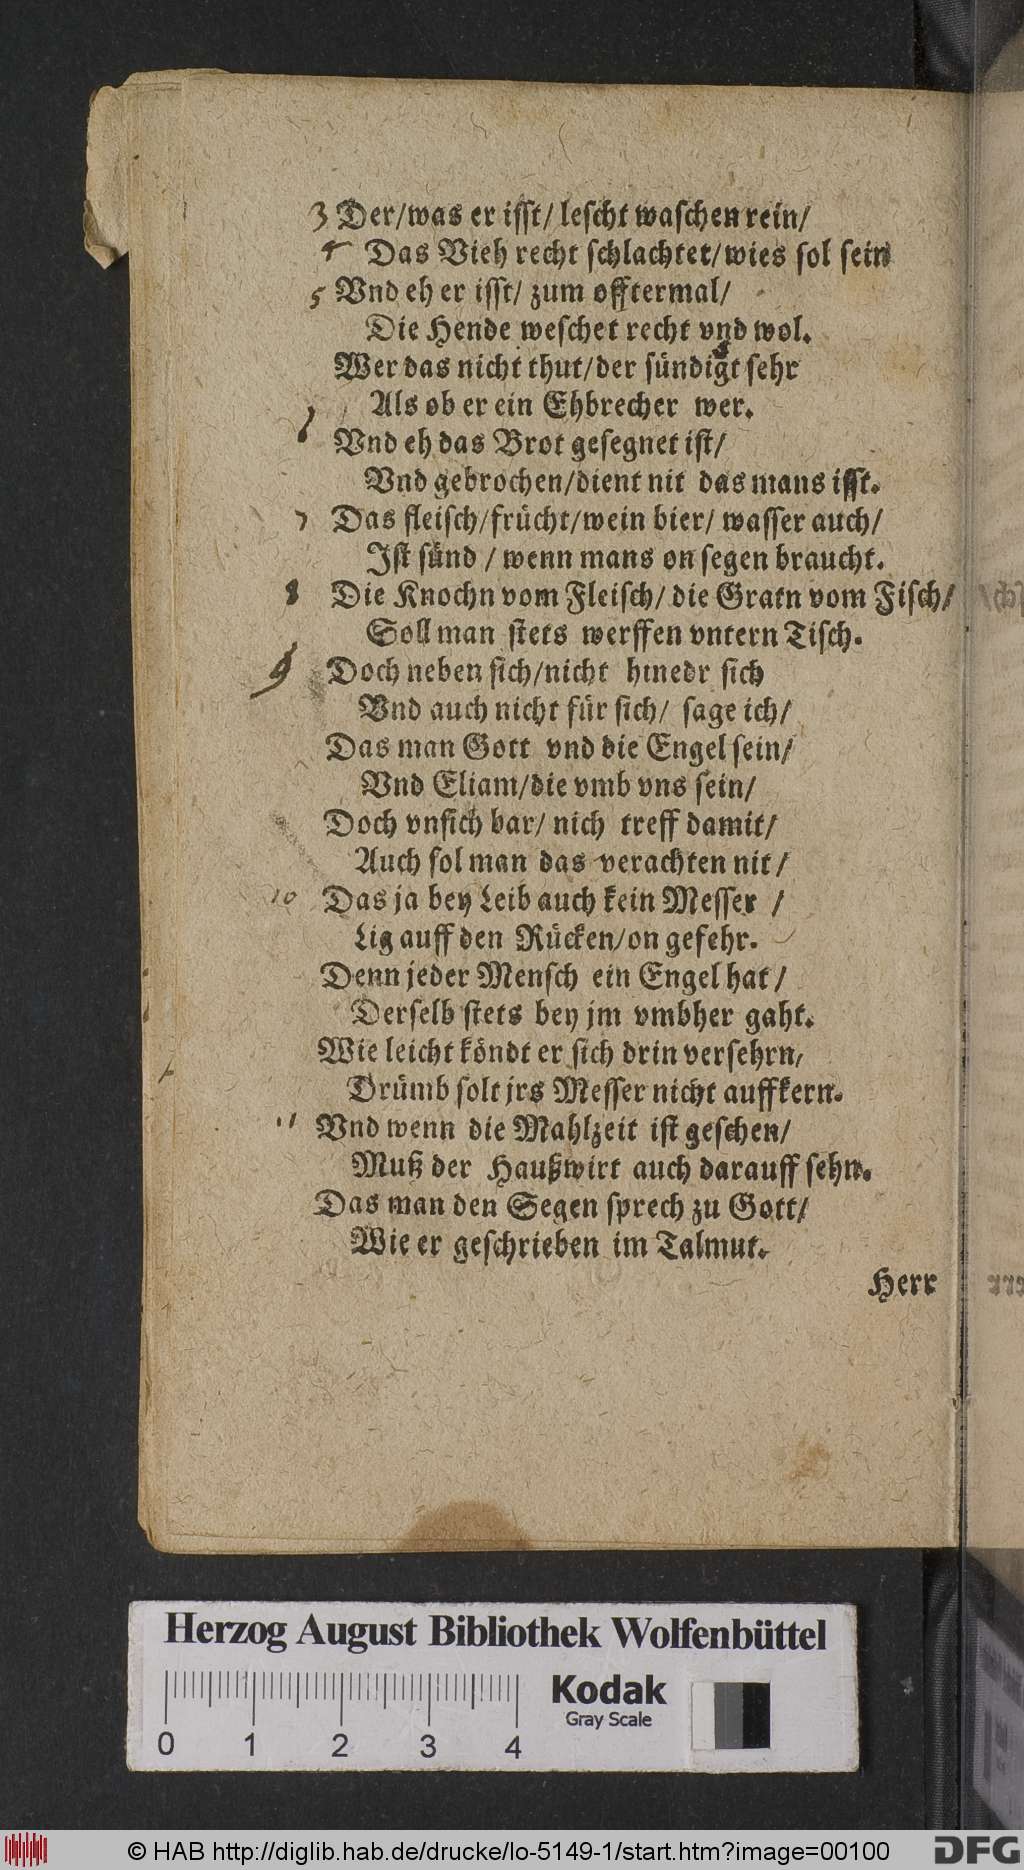 3 Der/was er isst/ lescht waschen rein/
4 Das Vieh recht schlachtet/wies sol sein
5 Vnd eh er isst/ zum offtermal/
Die Hende weschet recht vnd wol.
Wer das nicht thut/der sündigt sehr
Als ob er ein Ehbrecher wer.
6 Vnd eh das Brot gesegnet ist/
Vnd gebrochen/dient nit das mans isst.
7 Das fleisch/frücht/wein bier/ wasser auch/
Ist sünd / wenn mans on segen braucht.
8 Die Knochn vom Fleisch/ die Gratn vom Fisch/
Soll man stets werffen vntern Tisch.
9 Doch neben sich/nicht hinedr sich
Vnd auch nicht für sich/ sage ich/
Das man Gott vnd die Engel sein/
Vnd Eliam/die vmb vns sein/
Doch vnsich bar/ nich treff damit/
Auch sol man das verachten nit/
10 Das ja bey Leib auch kein Messer /
Lig auff den Rücken/on gefehr.
Denn jeder Mensch ein Engel hat/
Derselb stets bey jm vmbher gaht.
Wie leicht köndt er sich drin versehrn/
Drümb solt jrs Messer nicht auffkern.
11 Vnd wenn die Mahlzeit ist geschen/
Muß der Haußwirt auch darauff sehn.
Das man den Segen sprech zu Gott/
Wie er geschrieben im Talmut.
Herr
Herzog August Bibliothek Wolfenbüttel
Kodak
Gray Scale
0 1 2 3 4
© HAB http://diglib.hab.de/drucke/lo-5149-1/start.htm?image=00100
DFG